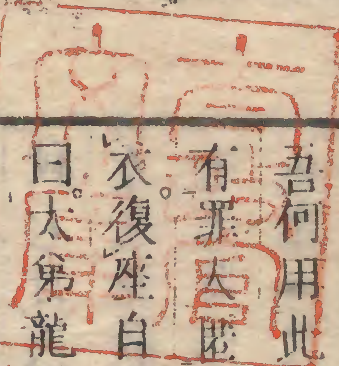 吾何用此
有罪人臣
衣復座自
曰太弟龍